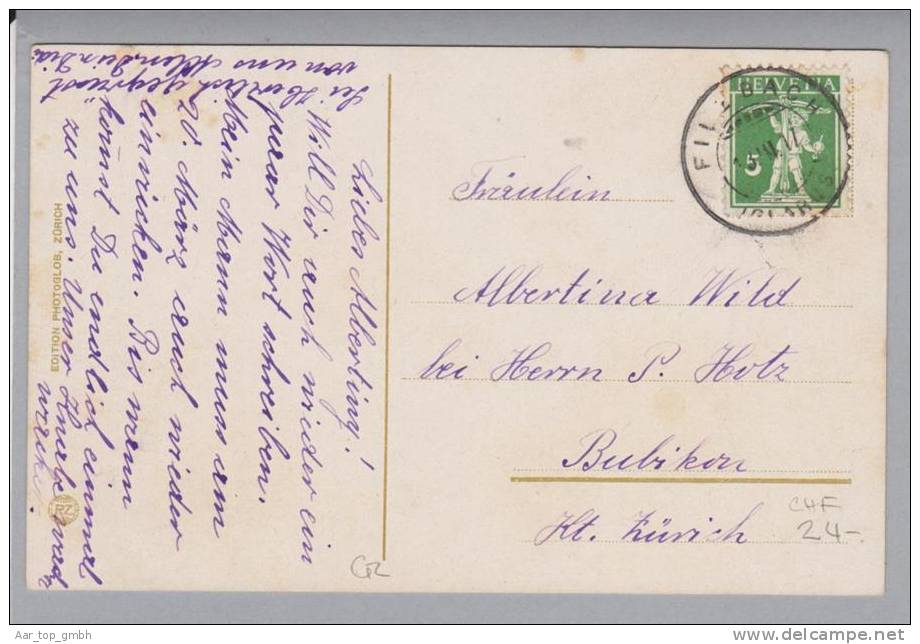 Liebes Alberting!
Will Dir auch wieder ein
paar Wort schreiben.
Mein Mann muss am
20. März auch wieder
einrücken. Bis wann
kommst Du endlich einmal
zu uns. Unser Knabe
Sei herzlich gegrüsst
von uns Allen
EDITION PHOTOGLOB, ZÜRICH
PZ
HELVETIA
5
FILZBACH
(GLARUS)
Fräulein
Albertina Wild
bei Herrn P. Hotz
Bubikon
Kt. Zürich
CHF
24-
GR
Aar_top_gmbh
www.delcampe.net